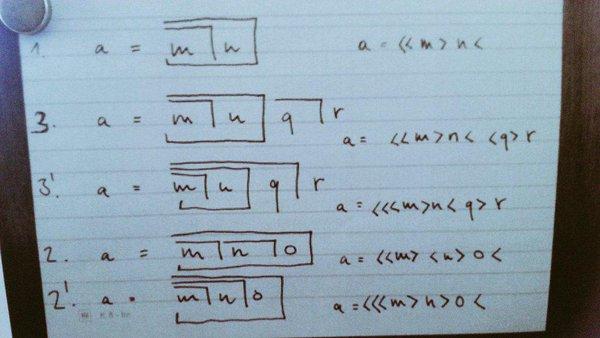 1. a = m n a = <<m>n<
3. a = m n q r a = <<m>n< <q>r
3' a = m n q r a = <<<m>n<q>r
2. a = m n o a = <<m> <n>o<
2' a = m n o a = <<<m>n>o<